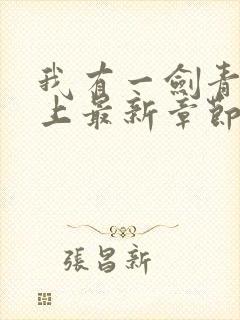 我有一劍青
上最新章節
張昌新